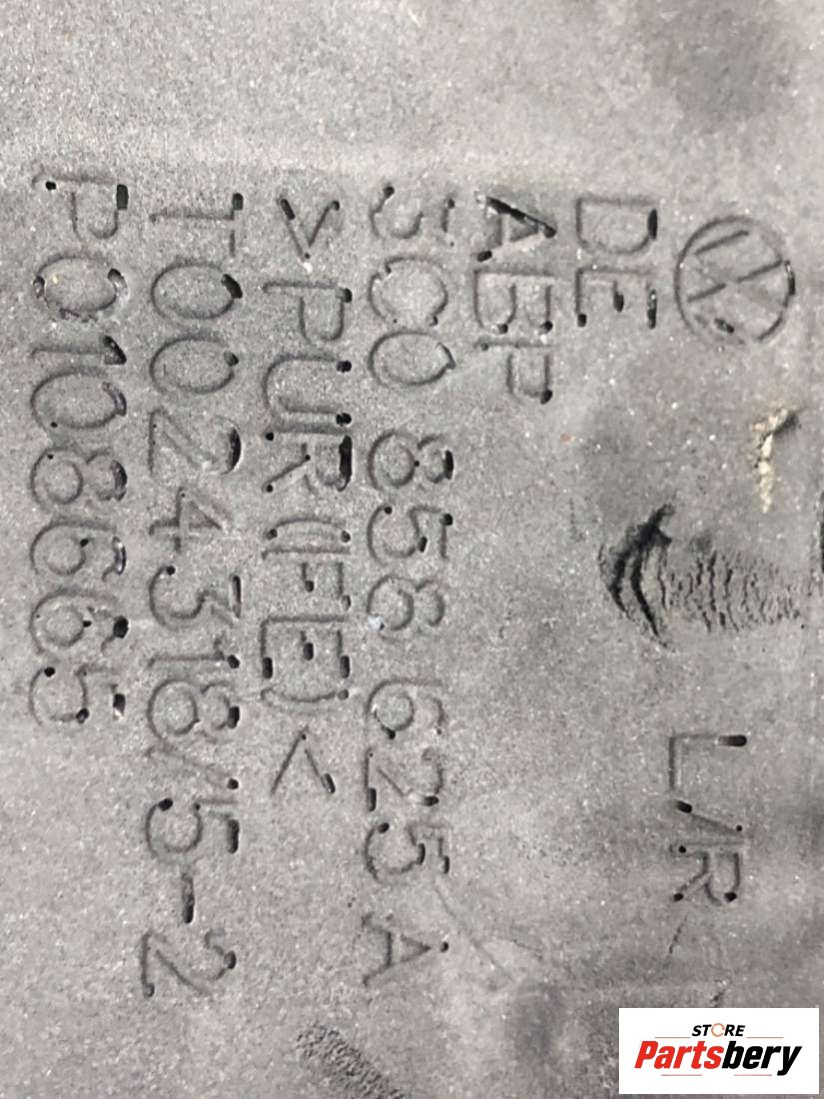 L/R
DE
ABP
3C0 858 625 A
>PUR(FE)<
T0024318/5-2
P0108665
STORE
Partsbery